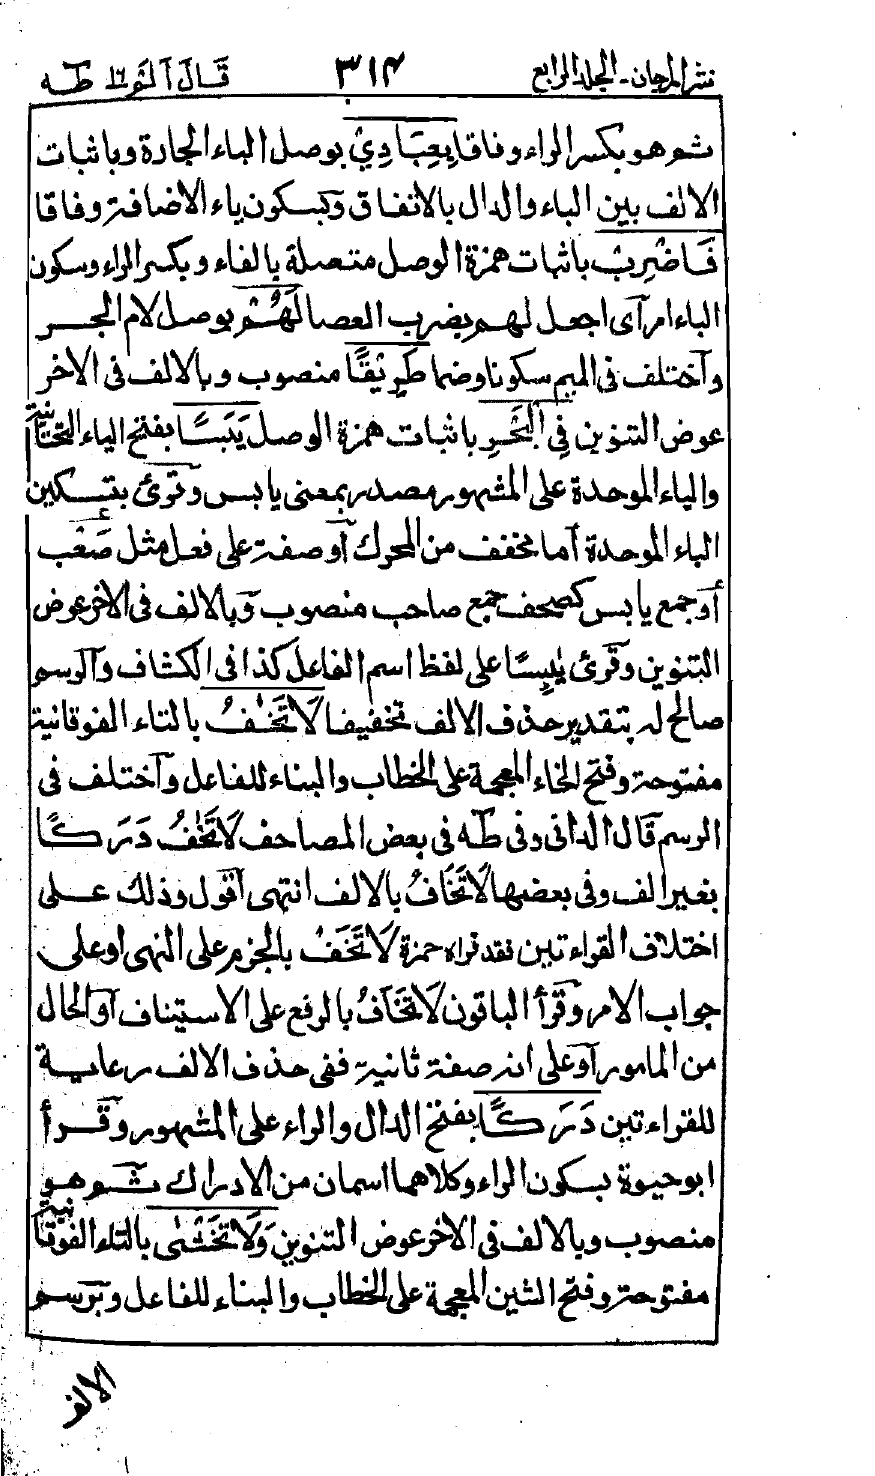 نثر المرجان - المجلد الرابع ٣١٤ قَالَ آلَمْ ١٦ طٰه
ثم هو بكسر الراء وفاقا بِعِبَادِيْ بوصل الباء الجارة وباثبات
الالف بين الباء والدال بالاتفاق وبسكون ياء الاضافة وفاقا
فَاضْرِبْ باثبات همزة الوصل متصلة بالفاء وبكسر الراء وسكون
الباء امر آى اجعل لهم بضرب العصا لَهُمْ بوصل لام الجر
وآختلف في الميم سكونا وضما طَرِيْقًا منصوب وبالالف فى الاخر
عوض التنوين فِي الْبَحْرِ باثبات همزة الوصل يَبَسًا بفتح الياء التحتانية
والباء الموحدة على المشهور مصدر بمعنى يابس وقرئ بتسكين
الباء الموحدة أما مخفف من المحرك آو صفة على فعل مثل صَعْب
أو جمع يابس كصحف جمع صاحب منصوب وبالالف فى الاخر عوض
التنوين وقرئ يٰبِسًا على لفظ اسم الفاعل كذا فى الكشاف وآلرسم
صالح له بتقدير حذف الالف تخفيفا لَا تَخٰفُ بالتاء الفوقانية
مفتوحة وفتح الخاء المعجمة على الخطاب والبناء للفاعل وآختلف فى
الرسم قال الدانى وفى طٰه فى بعض المصاحف لَا تَخٰفُ دَرَكًا
بغير الف وفى بعضها لَا تَخَافُ بالالف انتهى آقول وذلك على
اختلاف القراءتين فقد قراه حمزة لَا تَخَفْ بالجزم على النهى او على
جواب الامر وقرأ الباقون لَا تَخَافُ بالرفع على الاستيناف آو الحال
من المامور آو على انه صفة ثانية ففى حذف الالف رعاية
للقراءتين دَرَكًا بفتح الدال والراء على المشهور وقرأ
ابو حيوة بسكون الراء وكلاهما اسمان من الادراك ثم هو
منصوب وبالالف فى الاخر عوض التنوين وَلَا تَخْشٰى بالتاء الفوقانية
مفتوحة وفتح الشين المعجمة على الخطاب والبناء للفاعل وبرسم
الالف